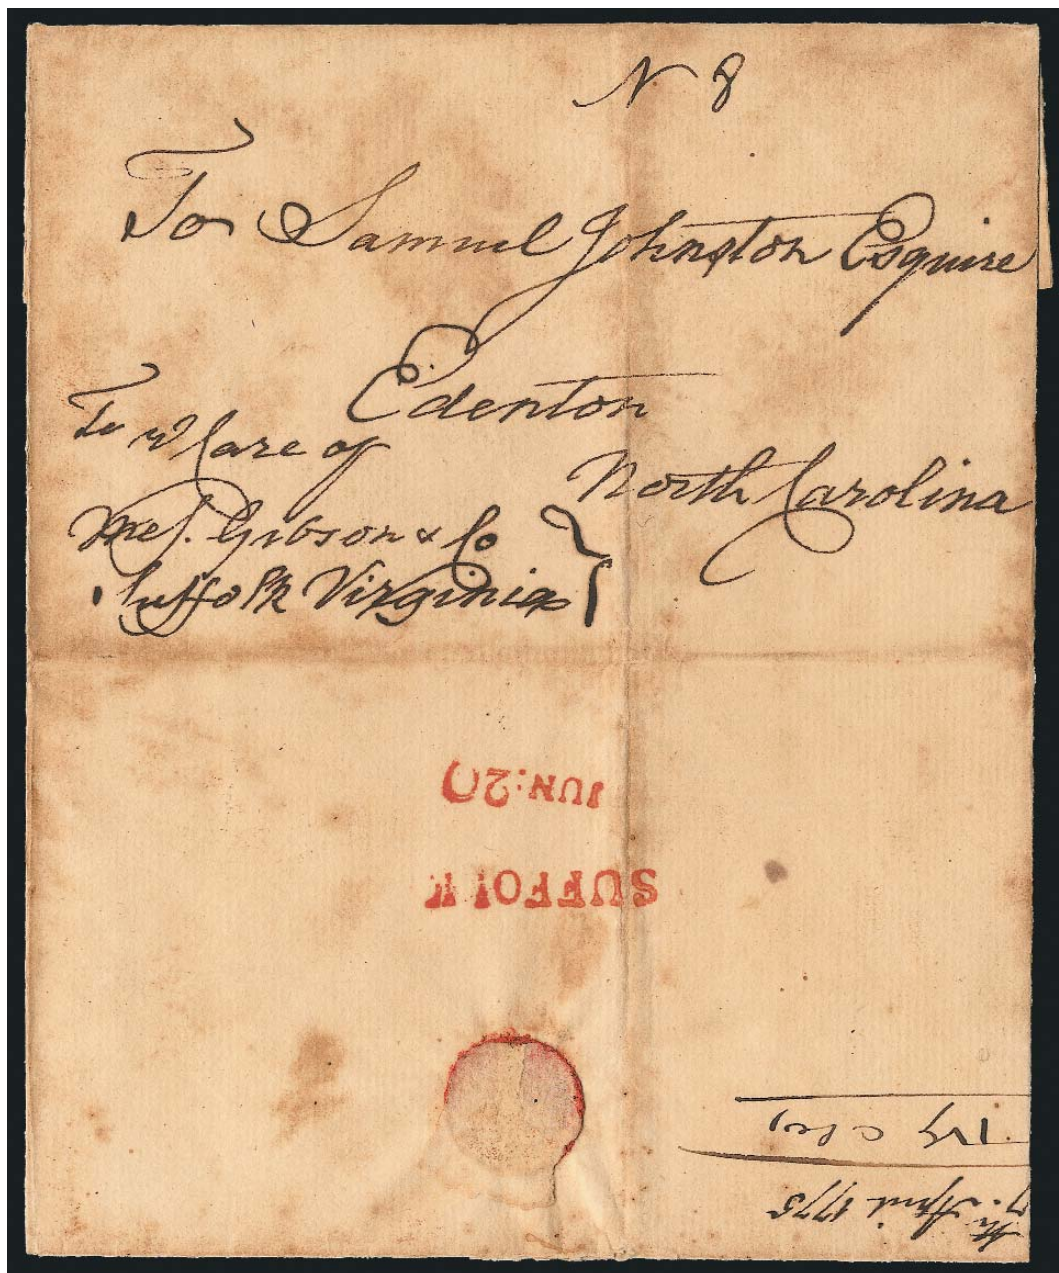 N 8
To Samuel Johnston Esquire
Edenton
North Carolina
To ye Care of
Mes. Gibson & Co
Suffolk Virginia
JUN:20
SUFFOLK
April 1775